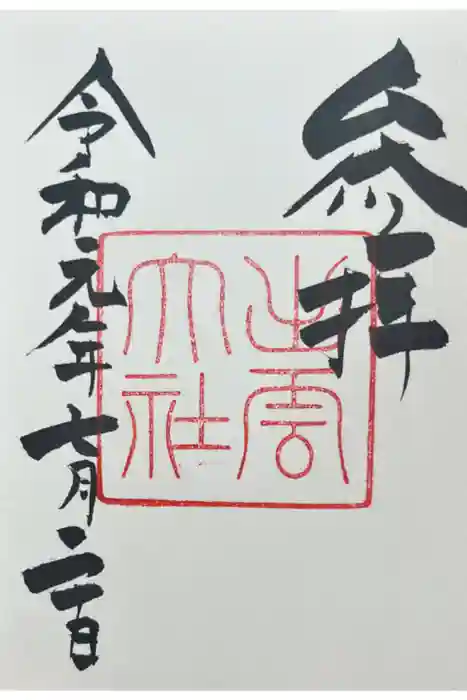 参拝
出雲
大社
令和元年七月二十日